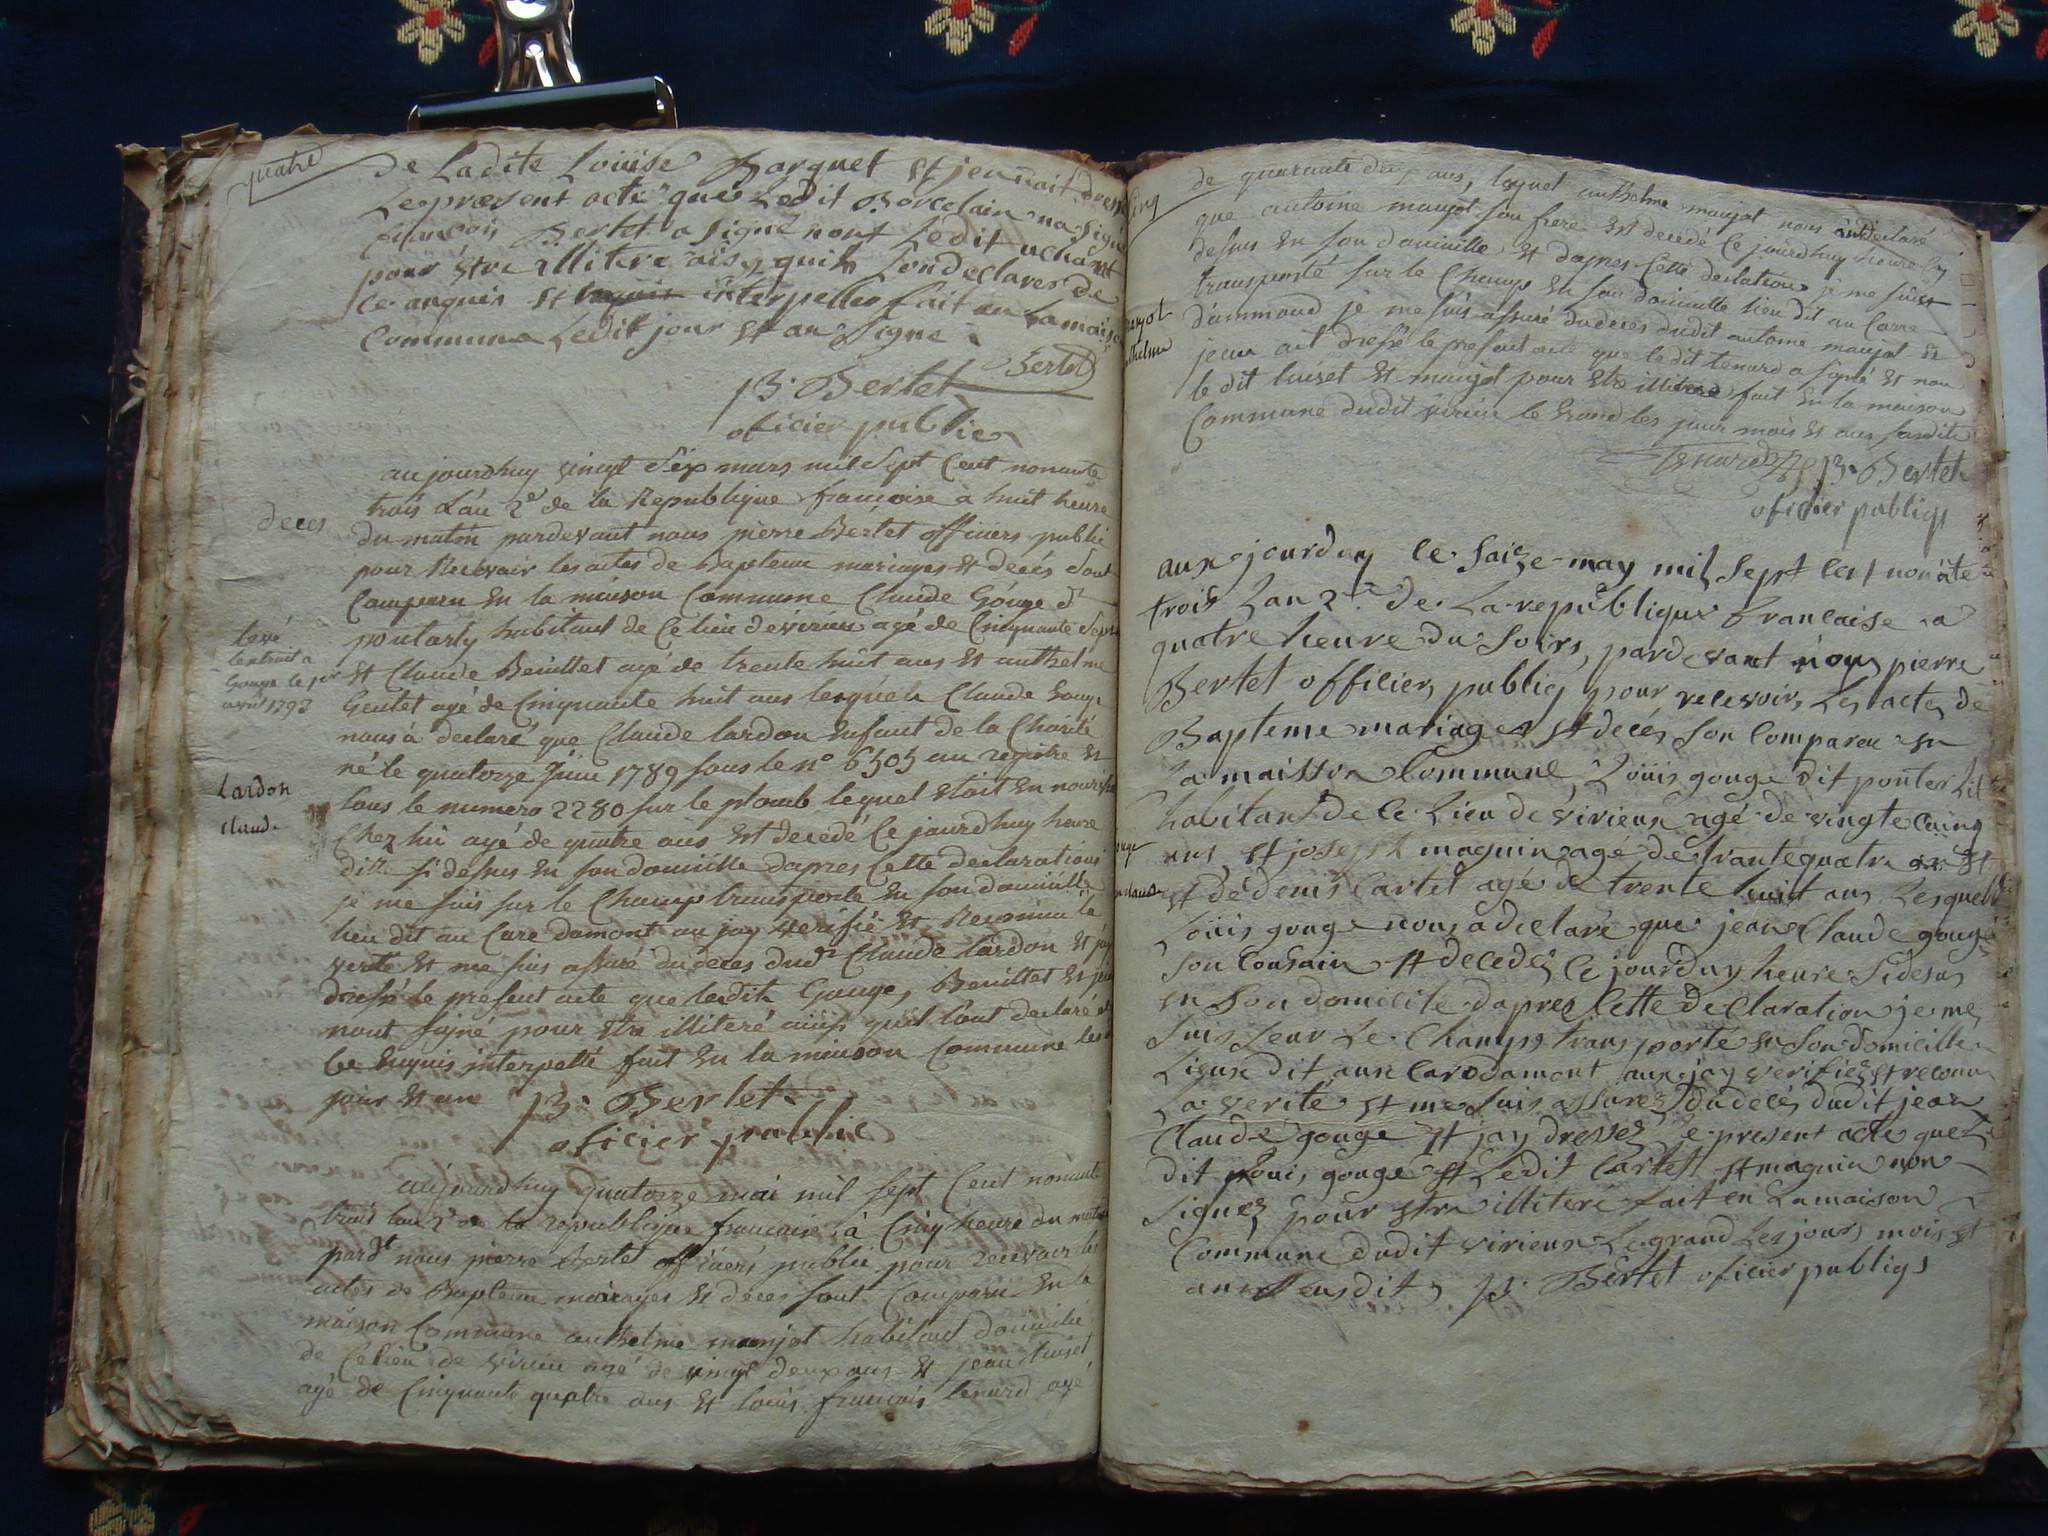 quatre
de Ladite Loüise Barquet et jeu nait dressé
Le præsent acte que Ledit Borcelain na signé
françois Bertet a signé nont Ledit
pour être illitere aisy quils Londeclarer de
ce anquis et interpellés fait en La maison
Commune Ledit jour et an Signe
Bertet
p. Bertet
oficier public
aujourdhuy vingt Six mars mil Sept Cent nonante
trois L'an 2e de la Republique françoise à huit heure
du matin pardevant nous pierre Bertet officiers public
pour Recevoir les actes de Bapteme mariages et decés Sont
Comparu en la maison Commune Claude Gouge dt
pontarly habitant de Ce lieu de virieu agé de Cinquante Sept
et Claude Beuillet agé de trente huit ans et anthelme
Gentet agé de Cinquante huit ans lesquels Claude Gouge
nous à declaré que Claude lardon Enfant de la Charité
né le quatorze Juin 1789 sous le no 6505 au registre et
sous le numero 2280 sur le plomb lequel etoit en nourisse
Chez lui agé de quatre ans est decedé Ce jourdhuy heure
ditte si desus en son domicille dapres Cette declarations
je me suis sur le Champ transporté en son domicille
lieu dit au Care damont ou jay verifié et Reconnu la
verité et me suis assuré du deces dudt Claude lardon et jay
dressé le present acte que lesdits Gouge, Beuillet et
nont signé pour etre illiteré ainsi quil l'ont declaré de
Ce enquis interpellé fait en la maison Commune les
jour et an p. Bertet
oficier public
deces
levé
lextrait a
Gouge le per
avril 1793
Lardon
Claud.
aujourdhuy quatorze mai mil sept Cent nonante
trois lan 2e de la republique francaise à Cinq heure du matin
pardt nous pierre Bertet officiers public pour recevoir les
actes de Bapteme mariages et déces sont Comparu en la
maison Commune anthelme maujot habitant domicilié
de Ce lieu de virieu agé de vingt deux ans et jean tuiset
agé de Cinquante quatre ans et louis françois tenard agé
cinq
de quarante deux ans, lequel anthelme maujot nous a declaré
que antoine maujot son frere est decedé Ce jourdhuy heure Cy
desus en son domicille et dapres Cette declation je me suis
transporté sur le Champ en son domicille lieu dit au Carre
d'ammond je me suis assuré du deces dudit antoine maujot et
jeu ait dressé le present acte que ledit tenard a signé et non
le dit tuiset et maujot pour etre illiteré fait en la maison
Commune dudit virieu le Grand les jour mois et ans susdits
maujot
anthelme
Tenard p. Bertet
oficier publiqs
aux jourduy le Saize may mil Sept Cent nonáte
trois Lan 2e de La republique francaise a
quatre heure du Soirs, pardevant nous pierre
Bertet officier publiq pour recevoir Les actes de
Bapteme mariages et deces Son Comparu en
La maisson Commune Loüis gouge dit ponterLit
habitant de Ce Lieu de virieux agé de vingte Cainq
ans et joseph maguin agé de trantequatre an et
et de denis Cartet agé de trente huit ans Lesquels
Loüis gouge nous a declaré que jean Claude gouge
son Cousain et decedez Ce jourduy heure Sidesus
en Son domicile dapres Cette declaration je me
Suis Seur Le Champs transporté en Son domicille
Lieux dit aux Carodamont aux jay verifiéz et reconu
La verité et me Suis assurez du decés dudit jean
Claude gouge et jay dressez Le present acte que Le
dit Louis gouge et Ledit Cartet et maguin non
Signez pour etre illiteré fait en La maison
Commune dudit virieux Le grand Les jours mois et
an Susdit p. Bertet oficier publiqs